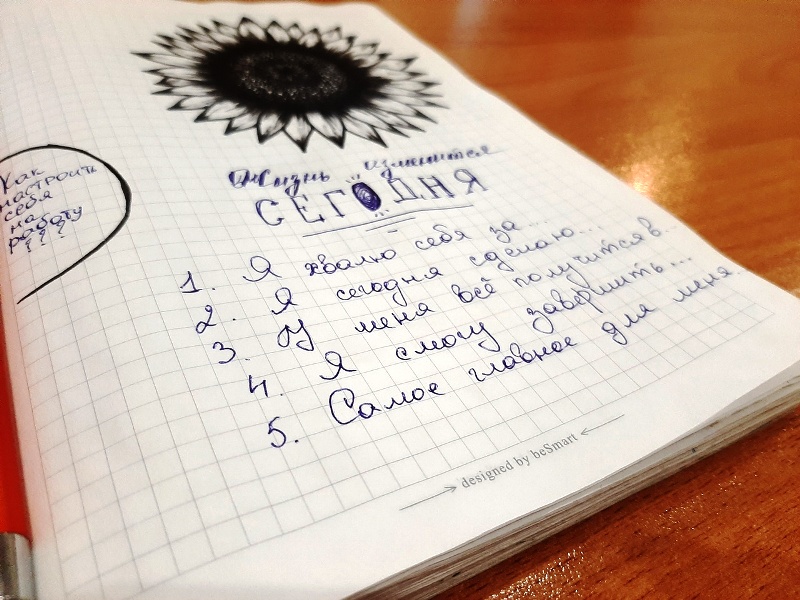 Как
настроить
себя
на
работу
???
Жизнь изменится
СЕГОДНЯ
1. Я хвалю себя за...
2. Я сегодня сделаю...
3. У меня всё получится в...
4. Я смогу завершить...
5. Самое главное для меня...
designed by beSmart